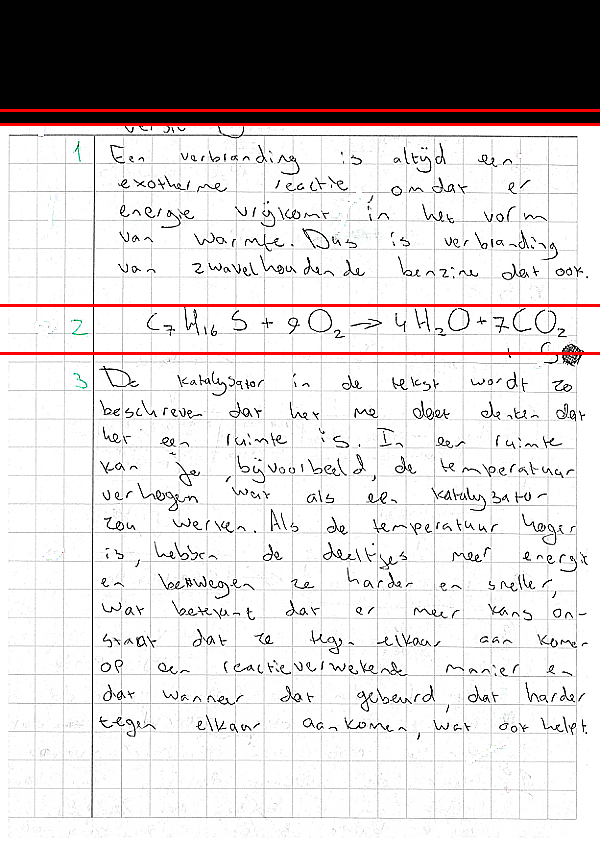 1 Een verbranding is altijd een
exotherme reactie, omdat er
energie vrijkomt in het vorm
van warmte. Dus is verbranding
van zwavelhoudende benzine dat ook.
2 C₇H₁₆S + 9O₂ → 4H₂O + 7CO₂
+ S
3 De katalysator in de tekst wordt zo
beschreven dat het me doet denken dat
het een ruimte is. In een ruimte
kan je, bijvoorbeeld, de temperatuur
verhogen wat als een katalysator
zou werken. Als de temperatuur hoger
is, hebben de deeltjes meer energie
en bewegen ze harder en sneller,
wat betekent dat er meer kans on-
staat dat ze tegen elkaar aan komen
op een reactieverwekende manier en
dat wanneer dat gebeurd, dat harder
tegen elkaar aankomen, wat ook helpt.